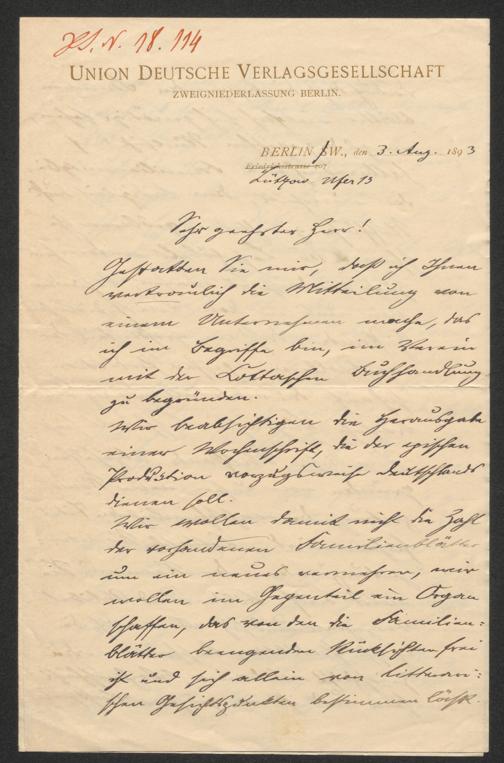 H.I.N. 18.114
UNION DEUTSCHE VERLAGSGESELLSCHAFT
ZWEIGNIEDERLASSUNG BERLIN.
BERLIN SW., den 3. Aug. 1893
Lützow Ufer 13
Sehr geehrter Herr!
Gestatten Sie mir, daß ich Ihnen
vertraulich die Mitteilung von
einem Unternehmen mache, das
ich im Begriffe bin, im Verein
mit der Cottaschen Buchhandlung
zu begründen.
Wir beabsichtigen die Herausgabe
einer Wochenschrift, die der epischen
Produktion vorzugsweise Deutschlands
dienen soll.
Wir wollen damit nicht die Zahl
der vorhandenen Familienblätter
um ein neues vermehren, wir
wollen im Gegenteil ein Organ
schaffen, das von den die Familien-
blätter beengenden Rücksichten frei
ist und sich allein von litterari-
schen Gesichtspunkten bestimmen läßt.